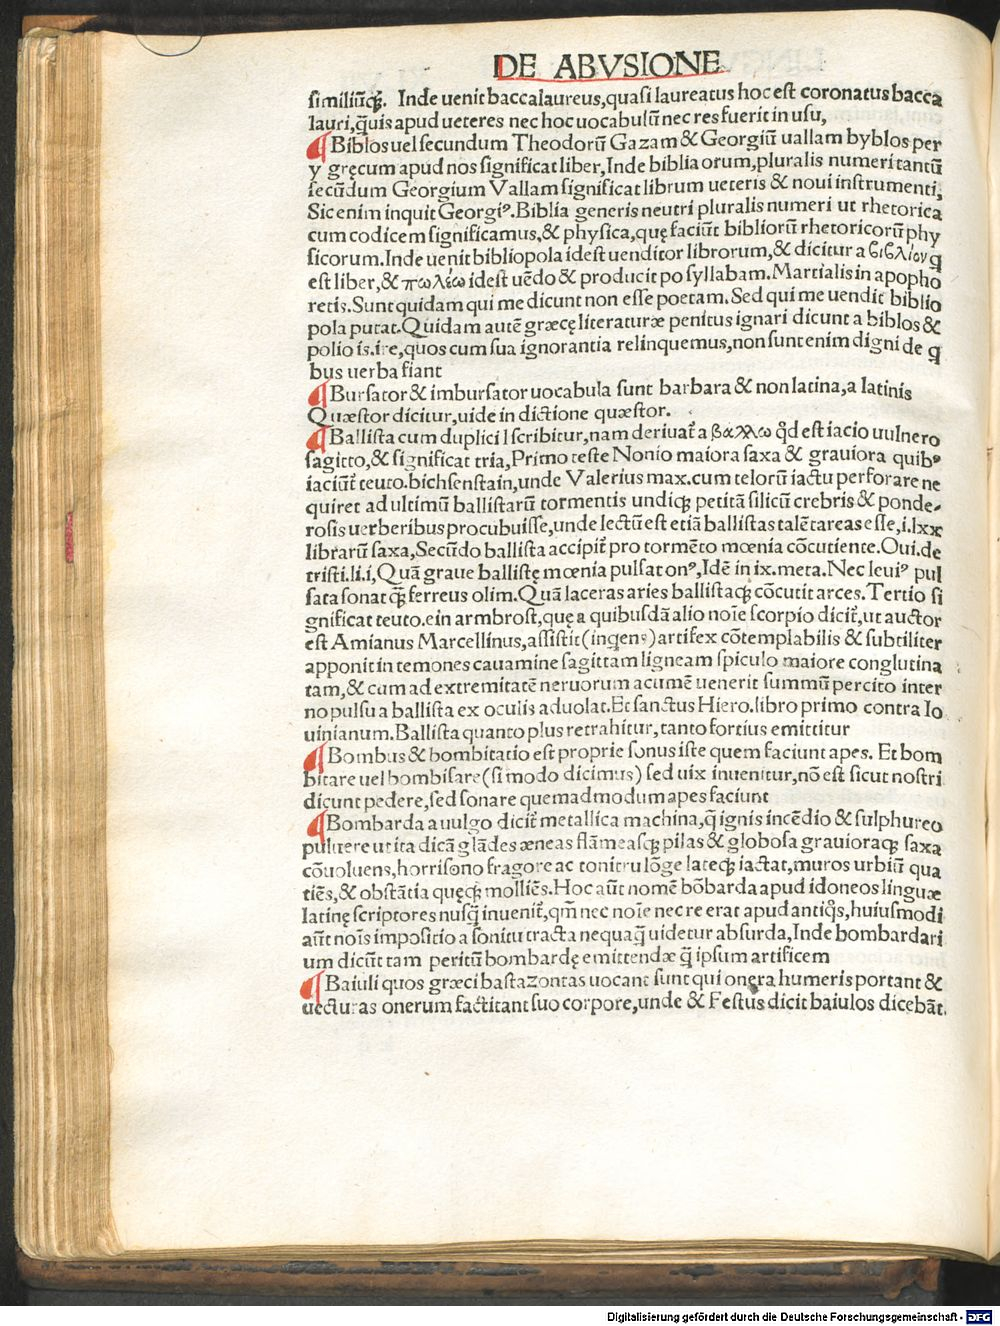 DE ABVSIONE
similiūq;. Inde uenit baccalaureus,quasi laureatus hoc est coronatus bacca
lauri,q̃uis apud ueteres nec hoc uocabulū nec res fuerit in usu,
¶Biblos uel secundum Theodorū Gazam & Georgiū uallam byblos per
y gręcum apud nos significat liber,Inde biblia orum,pluralis numeri tantū
secūdum Georgium Vallam significat librum ueteris & noui instrumenti,
Sic enim inquit Georgiꝰ.Biblia generis neutri pluralis numeri ut rhetorica
cum codicem significamus,& physica,quę faciūt bibliorū rhetoricorū phy
sicorum.Inde uenit bibliopola idest uenditor librorum,& dicitur a βιβλίον q̃
est liber,& πωλέω idest uēdo & producit po syllabam.Martialis in apopho
retis.Sunt quidam qui me dicunt non esse poetam.Sed qui me uendit biblio
pola putat.Quidam autē græcę literaturæ penitus ignari dicunt a biblos &
polio is.ire,quos cum sua ignorantia relinquemus,non sunt enim digni de q̃
bus uerba fiant
¶Bursator & imbursator uocabula sunt barbara & non latina,a latinis
Quæstor dicitur,uide in dictione quæstor.
¶Ballista cum duplici l scribitur,nam deriuat̃ a βάλλω q̊d est iacio uulnero
sagitto,& significat tria,Primo teste Nonio maiora saxa & grauiora quibꝰ
iaciūt̃ teuto.bichsenstain,unde Valerius max.cum telorū iactu perforare ne
quiret ad ultimū ballistarū tormentis undiq; petitā silicū crebris & ponde-
rosis uerberibus procubuisse,unde lectū est etiā ballistas talētareas esse,i.lxx
librarū saxa,Secūdo ballista accipit̃ pro tormēto mœnia cōcutiente.Oui.de
tristi.li.i,Quā graue ballistę mœnia pulsat onꝰ,Idē in ix.meta.Nec leuiꝰ pul
sata sonat q̃; ferreus olim.Quā laceras aries ballistaq; cōcutit arces.Tertio si
gnificat teuto.ein armbrost,quę a quibusdā alio noīe scorpio dicit̃,ut auctor
est Amianus Marcellinus,assistit(inquens)artifex cōtemplabilis & subtiliter
apponit in temones cauamine sagittam ligneam spiculo maiore conglutina
tam,& cum ad extremitatē neruorum acumē uenerit summū percito inter
no pulsu a ballista ex oculis aduolat.Et sanctus Hiero.libro primo contra Io
uinianum.Ballista quanto plus retrahitur,tanto fortius emittitur
¶Bombus & bombitatio est proprie sonus iste quem faciunt apes. Et bom
bitare uel bombisare(si modo dicimus) sed uix inuenitur,nō est sicut nostri
dicunt pedere,sed sonare quemadmodum apes faciunt
¶Bombarda a uulgo dicit̃ metallica machina,q̃ ignis incēdio & sulphureo
puluere ut ita dicā glādes æneas flāmeasq; pilas & globosa grauioraq; saxa
cōuoluens,horrisono fragore ac tonitru lōge lateq; iactat,muros urbiū qua
tiēs,& obstātia quęq; molliēs.Hoc aūt nomē bōbarda apud idoneos linguæ
latinę scriptores nusq̃ inuenit̃,qm̃ nec noīe nec re erat apud antiq̊s,huiusmodi
aūt noīs impositio a sonitu tracta nequaq̃ uidetur absurda,Inde bombardari
um dicūt tam peritū bombardę emittendæ q̃ ipsum artificem
¶Baiuli quos græci bastazontas uocant sunt qui onera humeris portant &
uecturas onerum factitant suo corpore,unde & Festus dicit baiulos dicebāt.
Digitalisierung gefördert durch die Deutsche Forschungsgemeinschaft - DFG